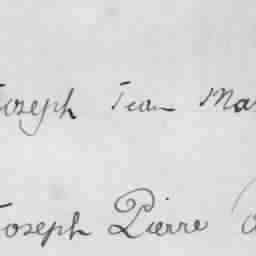 Joseph Jean Ma
Joseph Pierre